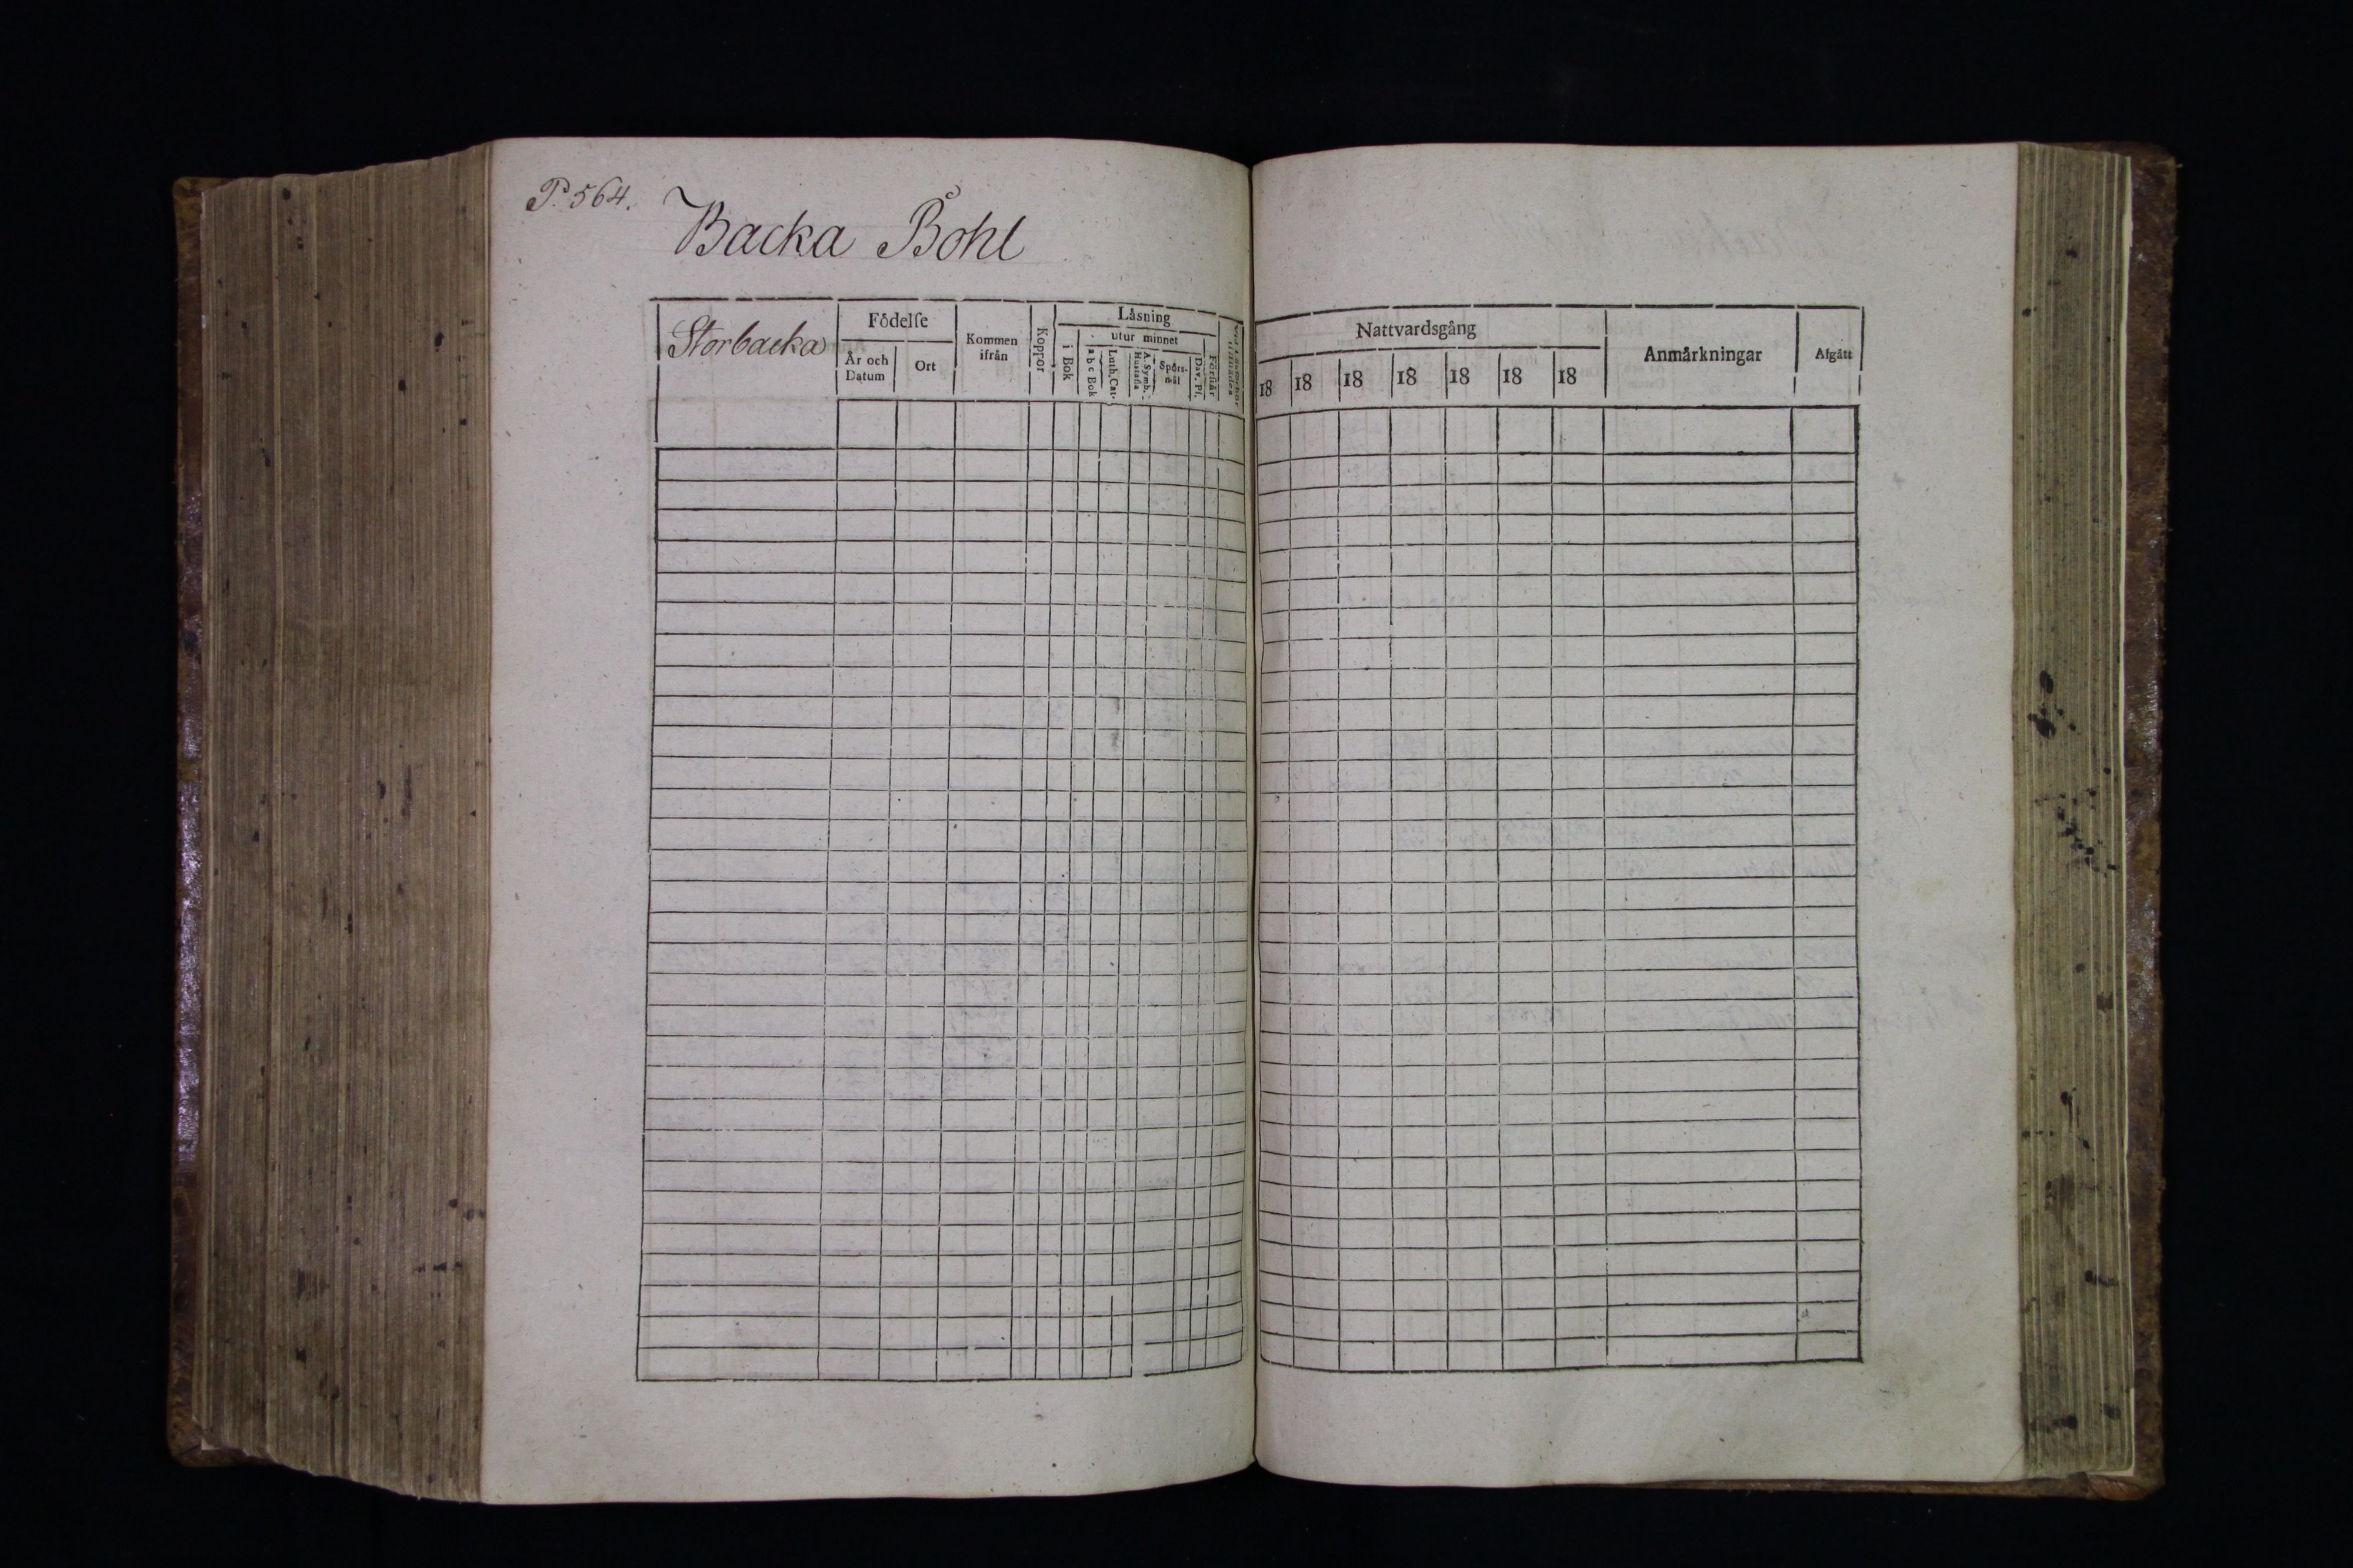 P. 564.
Backa Bohl
Storbacka
Födelse
År och
Datum
Ort
Kommen
ifrån
Koppor
Läsning
i Bok
utur minnet
a b c Bok
Luth. Cat.
A. Symb.
Hustafla
Spörs-
mål
Dav. Ps.
Förstår
Nattvardsgång
18 18 18 18 18 18 18
Anmärkningar
Afgått